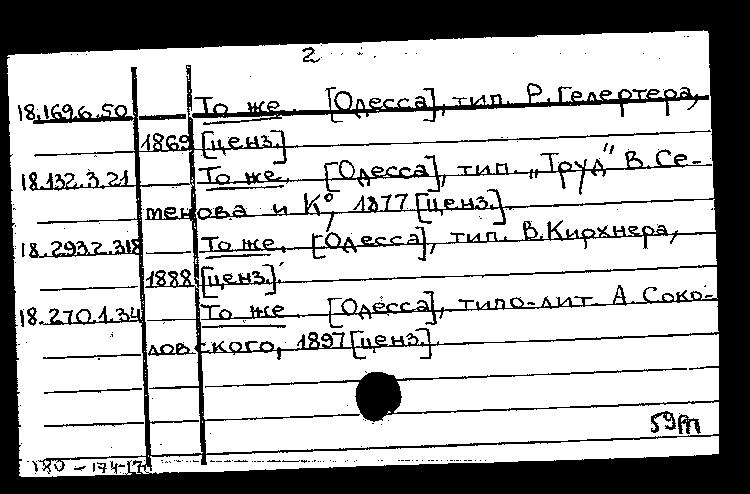 2
18.169.6.50 То же. [Одесса], тип. Р. Гелертера,
1869 [ценз.]
18.132.3.21 То же. [Одесса], тип. „Труд" В. Се-
менова и Ко, 1877 [ценз.]
18.293.2.318 То же. [Одесса], тип. В. Кирхнера,
1888 [ценз.].
18.270.1.34 То же. [Одесса], типо-лит. А. Соко-
ловского, 1897 [ценз.].
180-174-176